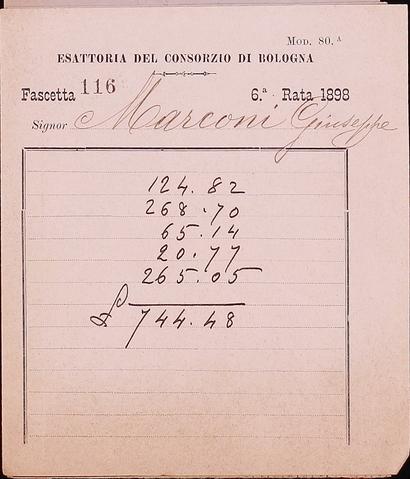 Mod. 80.A
ESATTORIA DEL CONSORZIO DI BOLOGNA
Fascetta 116 6.a Rata 1898
Signor Marconi Giuseppe
124.82
268.70
65.14
20.77
265.05
£ 744.48